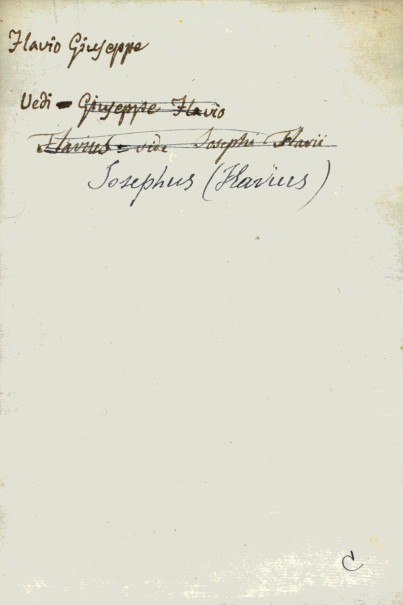 Flavio Giuseppe
Vedi - Giuseppe Flavio
Flavius = vide Josephi Flavii
Josephus (Flavius)
C